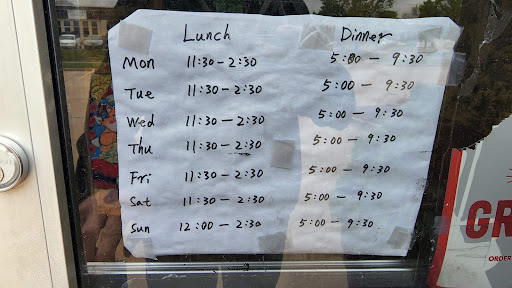 Lunch Dinner
Mon 11:30 - 2:30 5:00 - 9:30
Tue 11:30 - 2:30 5:00 - 9:30
Wed 11:30 - 2:30 5:00 - 9:30
Thu 11:30 - 2:30 5:00 - 9:30
Fri 11:30 - 2:30 5:00 - 9:30
Sat 11:30 - 2:30 5:00 - 9:30
Sun 12:00 - 2:30 5:00 - 9:30
GR
ORDER